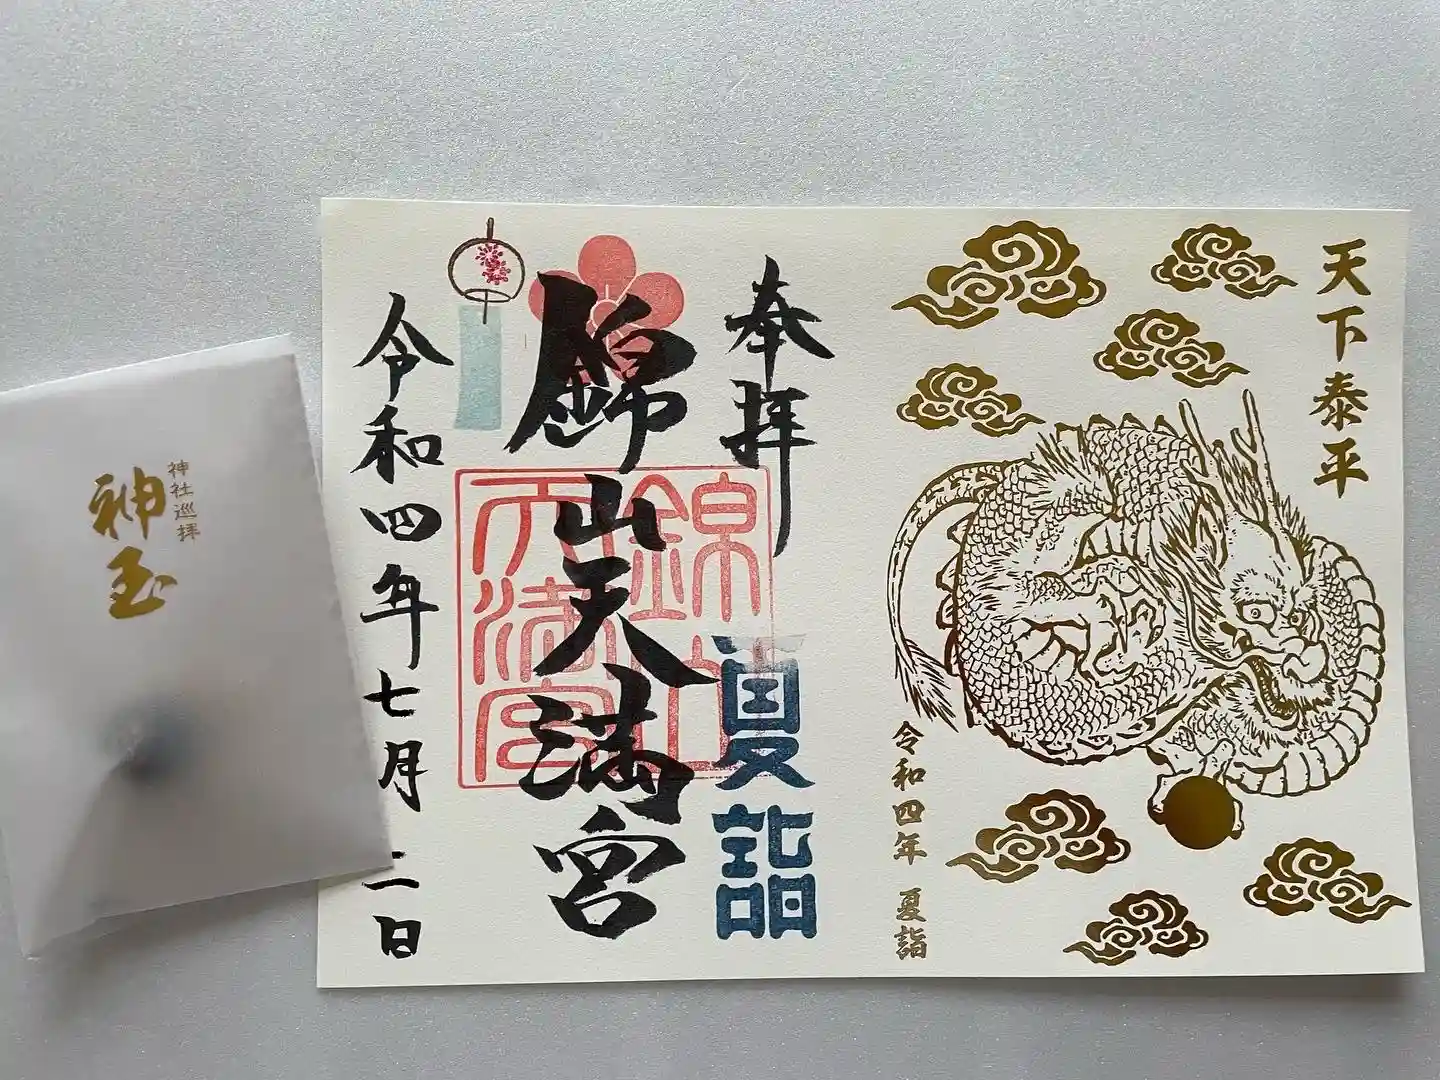 天下泰平
令和四年 夏詣
奉拝
夏詣
錦山天満宮
錦山天満宮
令和四年七月二日
神社巡拝
神玉